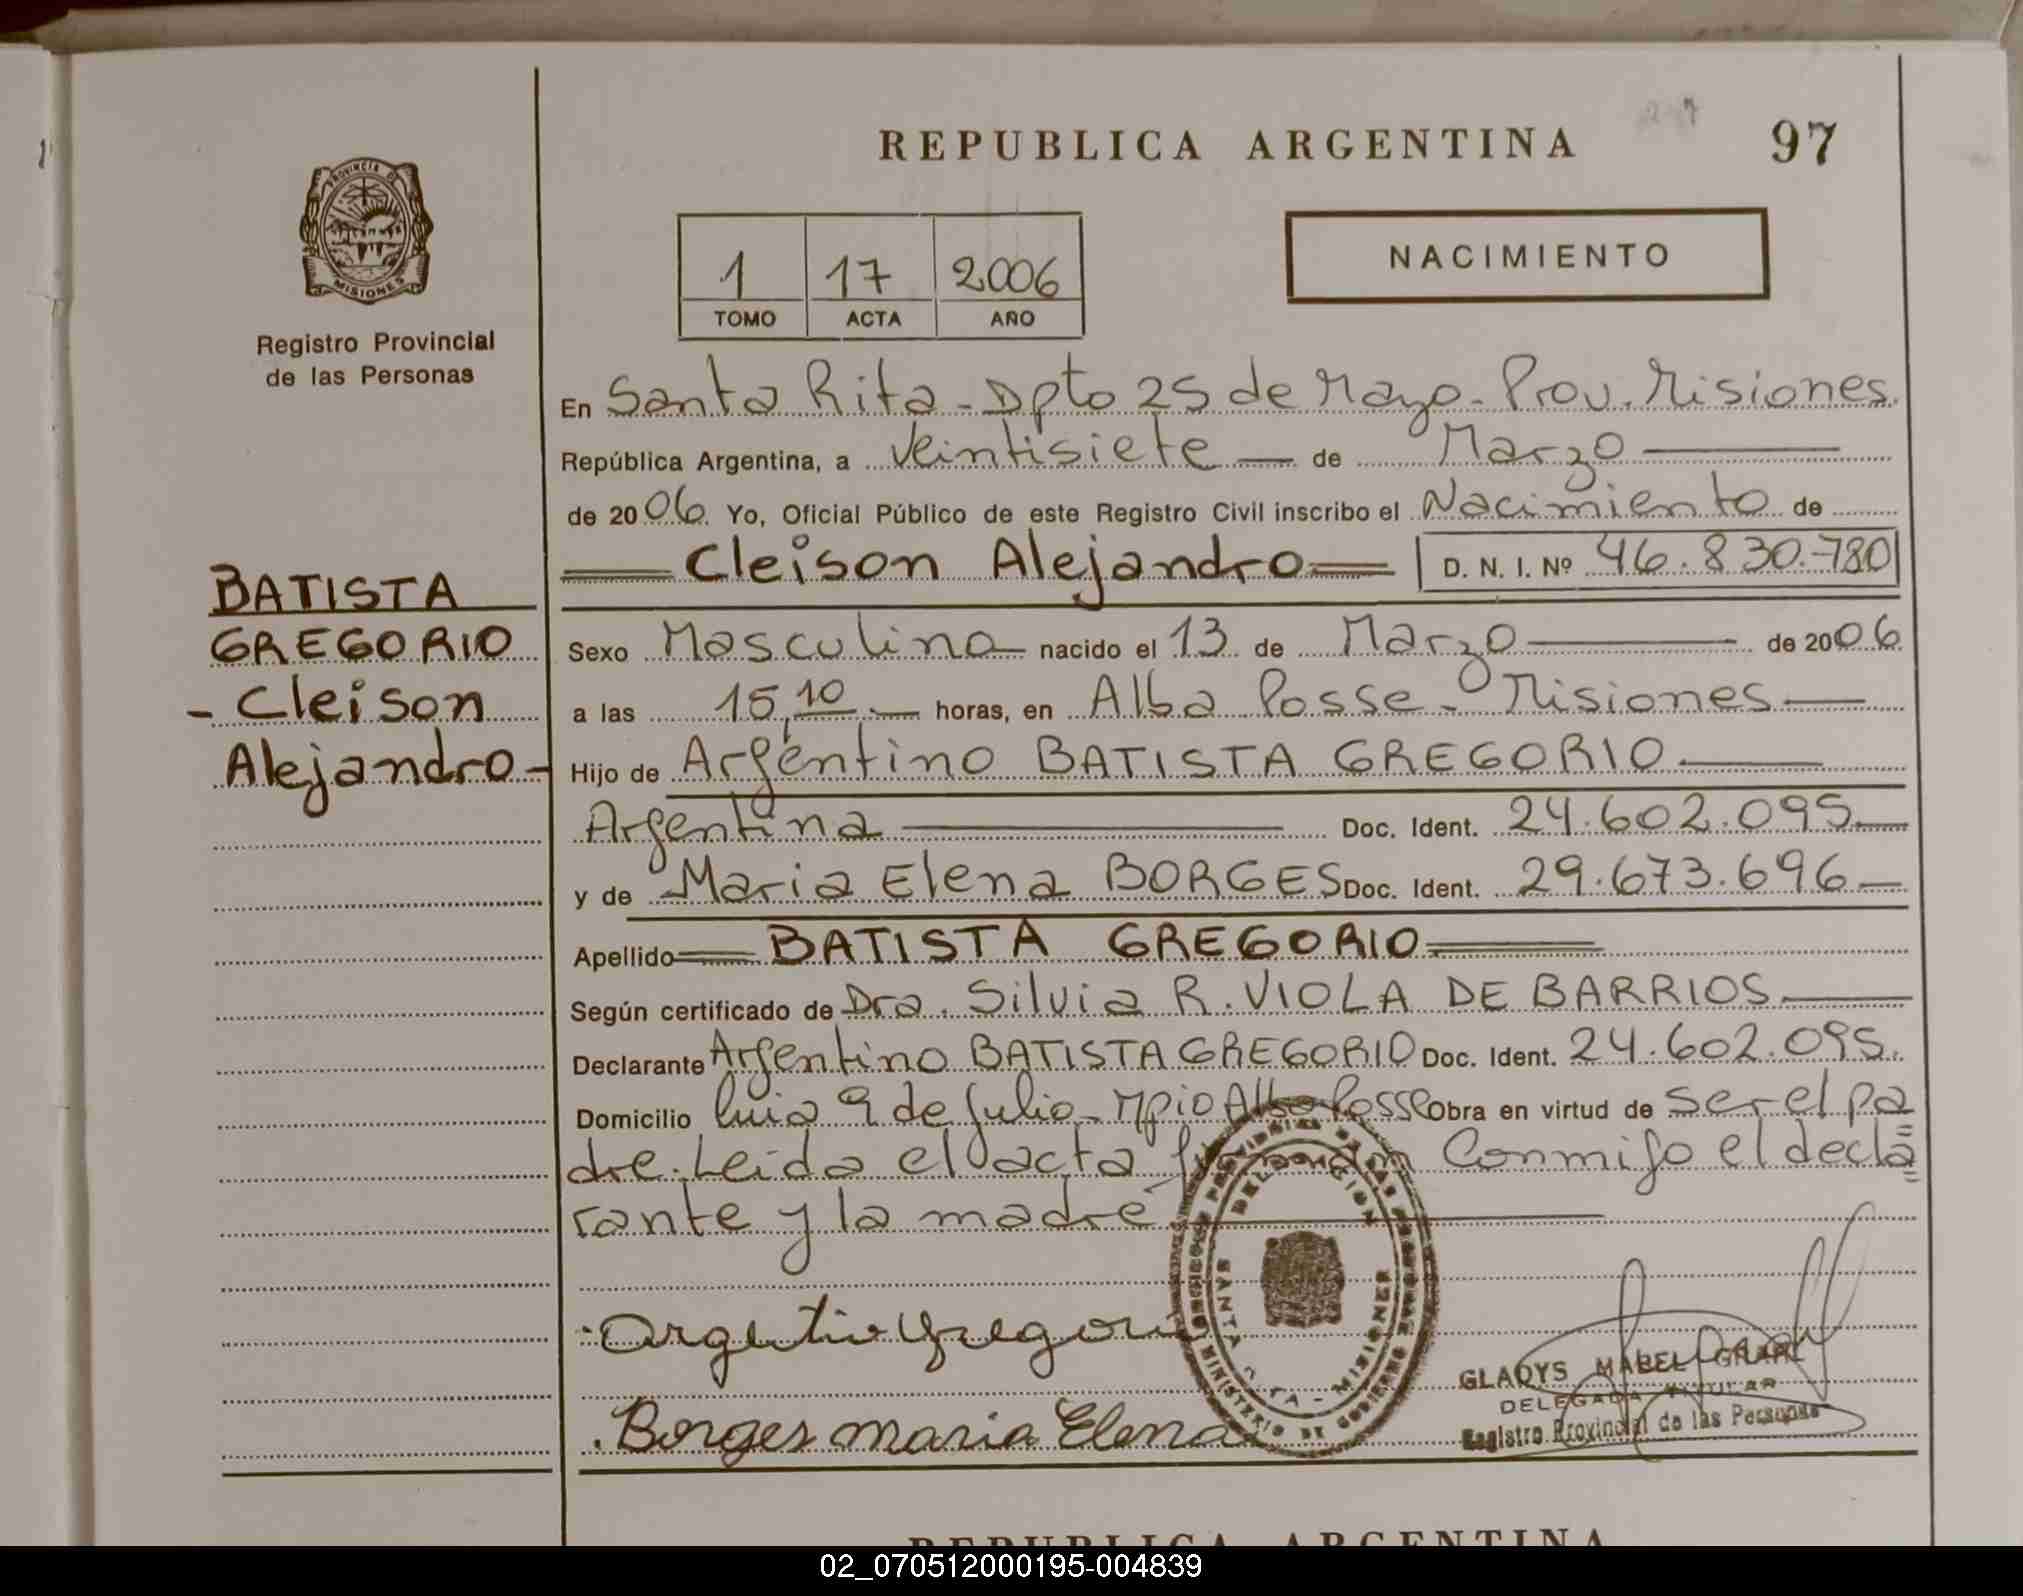 REPUBLICA ARGENTINA
97
PROVINCIA DE
MISIONES
Registro Provincial
de las Personas
1 17 2006
TOMO ACTA AÑO
NACIMIENTO
En Santa Rita - Dpto 25 de Mayo - Prov. Misiones
República Argentina, a Veintisiete de Marzo
de 2006. Yo, Oficial Público de este Registro Civil inscribo el Nacimiento de
Cleison Alejandro D. N. I. Nº 46.830.780
BATISTA
GREGORIO
- Cleison
Alejandro -
Sexo Masculino nacido el 13 de Marzo de 2006
a las 15,10 horas, en Alba Posse - Misiones
Hijo de Argentino BATISTA GREGORIO
Argentina Doc. Ident. 24.602.095
y de Maria Elena BORGES Doc. Ident. 29.673.696
Apellido BATISTA GREGORIO
Según certificado de Dra. Silvia R. VIOLA DE BARRIOS
Declarante Argentino BATISTA GREGORIO Doc. Ident. 24.602.095.
Domicilio 9 de Julio - Mpio Alba Posse Obra en virtud de ser el pa
dre. Leida el acta Conmigo el decla
rante y la madre
Borges maria Elena
GLADYS MABEL
DELEGADA TITULAR
Registro Provincial de las Personas
MINISTERIO DE GOBIERNO
SANTA RITA - MISIONES
REPUBLICA ARGENTINA
02_070512000195-004839